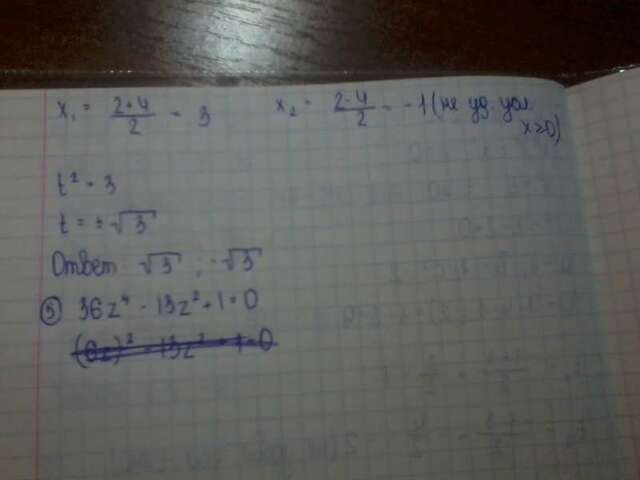 x₁ = (2+4)/2 = 3    x₂ = (2-4)/2 = -1 (не уд. усл. x>0)
t² = 3
t = ±√3
Ответ √3 ; -√3
⑤ 36z⁴ - 13z² + 1 = 0